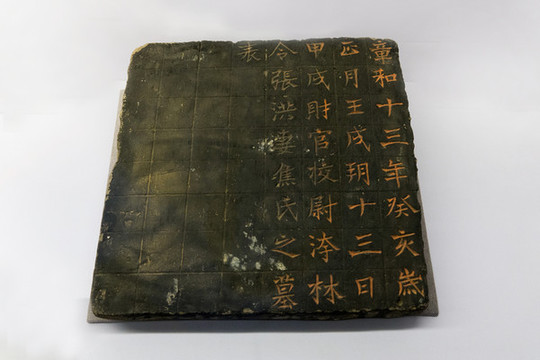 章和十三年癸亥歲
正月壬戌朔十三日
甲戌財官校尉洿林
令張洪妻焦氏之墓
表